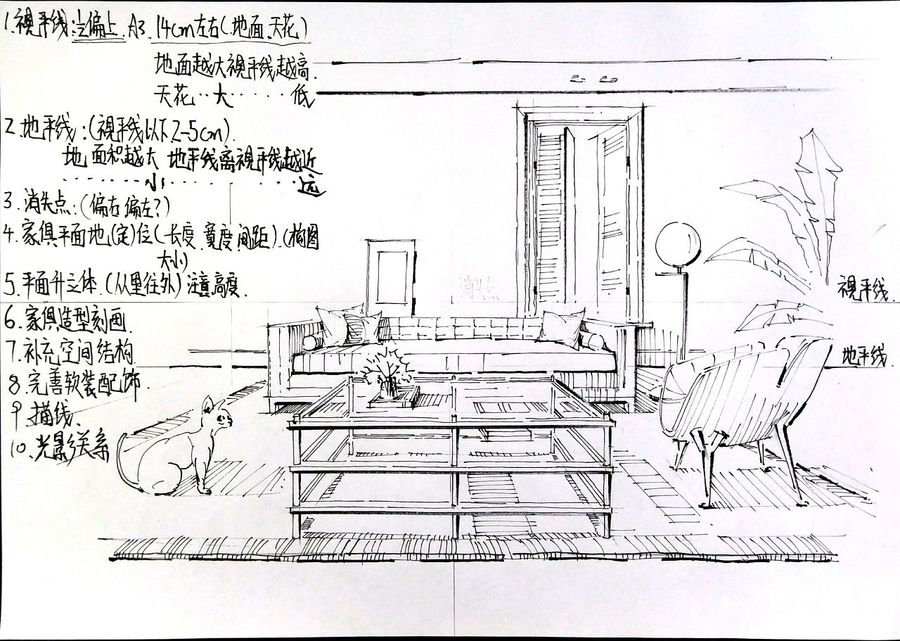 1.視平线:½偏上.A3.14cm左右(地面.天花)
地面越大視平线越高.
天花‥大‥‥‥低
2.地平线:(視平线以下2-5cm).
地面积越大 地平线离視平线越近
‥‥‥小‥‥‥‥‥‥远
3.消失点:(偏右.偏左?)
4.家俱平面地(定)位(长度.寬度.间距).(构图
大小)
5.平面升立体.(从里往外)注意高度.
6.家俱造型刻画.
7.补充空间结构
8.完善软装配饰.
9.描线.
10.光影关系
消失点
視平线.
地平线.